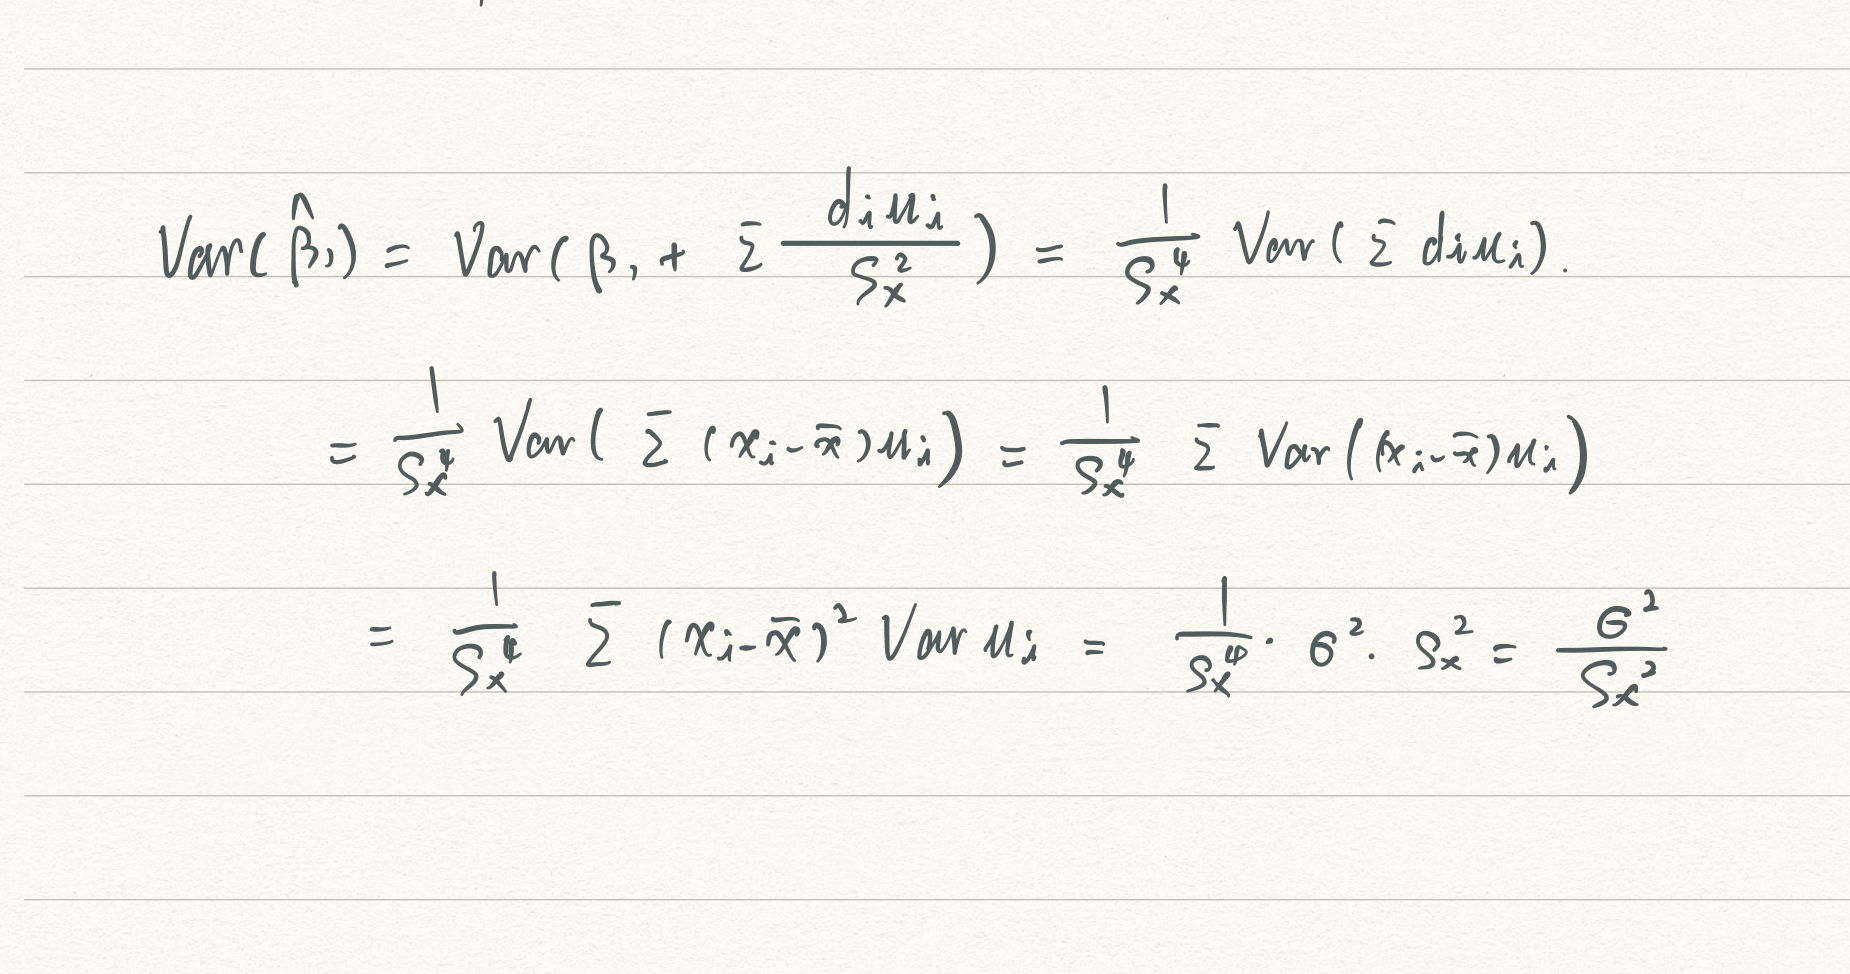 Var(β̂₁) = Var(β₁ + Σ dᵢuᵢ/Sₓ²) = 1/Sₓ⁴ Var(Σ dᵢuᵢ).
= 1/Sₓ⁴ Var(Σ (xᵢ-x̄)uᵢ) = 1/Sₓ⁴ Σ Var((xᵢ-x̄)uᵢ)
= 1/Sₓ⁴ Σ (xᵢ-x̄)² Var uᵢ = 1/Sₓ⁴ · σ² · Sₓ² = σ²/Sₓ²